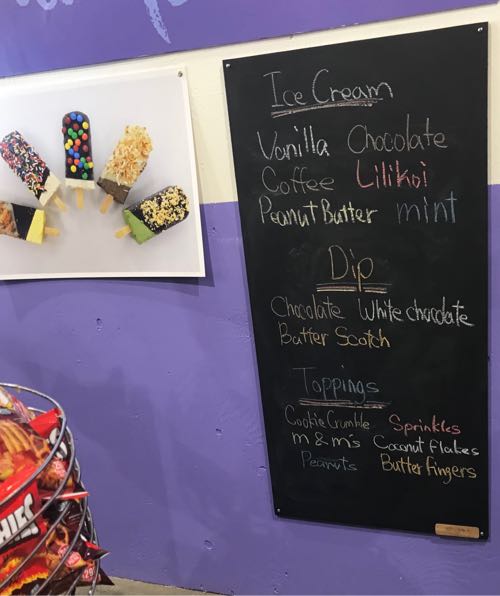 Ice Cream
Vanilla Chocolate
Coffee Lilikoi
Peanut Butter mint
Dip
Chocolate White chocolate
Butter Scotch
Toppings
Cookie Crumble Sprinkles
m & m's Coconut Flakes
Peanuts Butterfingers